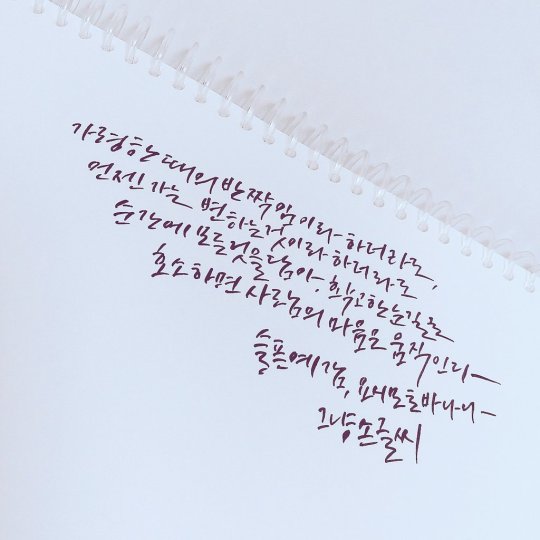 가령 한때의 반짝임이라 하더라도,
언젠가는 변하는 것이라 하더라도
순간에 모든것을 담아, 희구한 눈길로
호소하면 사람의 마음은 움직인다
슬픈예감, 요시모토바나나
그냥손글씨